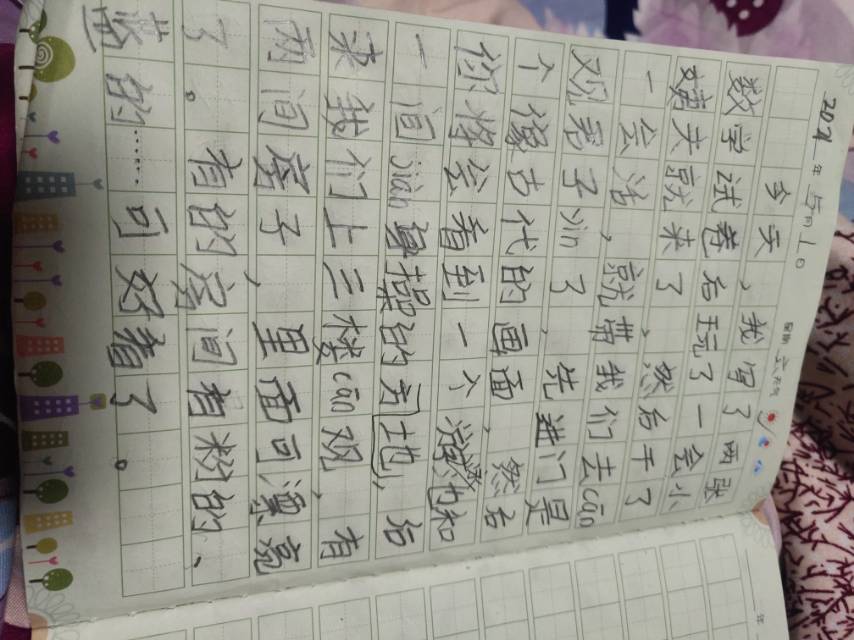 年 月 日 星期六 天气
今天，我写了两张
数学试卷后玩了一会小
姨夫就来了，然后干了
一会活，就带我们去cān
观房子jìn了，先进门是
个像古代的画面，然后
你将会看到一个池和
一间jiàn身操的房地，后
来我们上三楼cān观，有
两间房子，里面可漂亮
了。有的房间有粉的、
蓝的……可好看了。